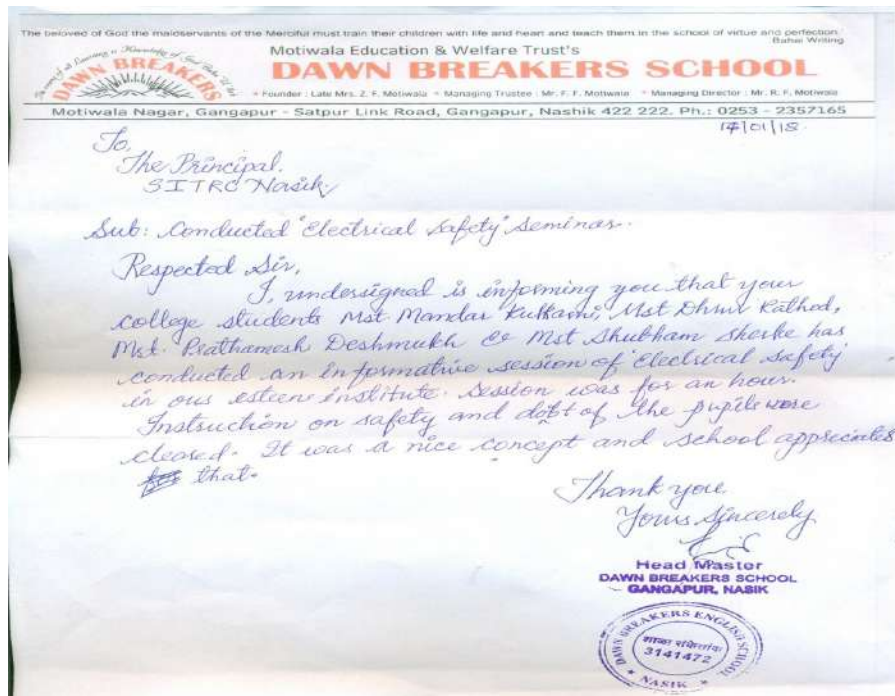 The beloved of God the maidservants of the Merciful must train their children with life and heart and teach them in the school of virtue and perfection.'
Bahai Writing
Motiwala Education & Welfare Trust's
DAWN BREAKERS
DAWN BREAKERS SCHOOL
• Founder : Late Mrs. Z. F. Motiwala • Managing Trustee : Mr. F. F. Motiwala • Managing Director : Mr. R. F. Motiwala
Motiwala Nagar, Gangapur - Satpur Link Road, Gangapur, Nashik 422 222. Ph.: 0253 - 2357165
17/01/18
To,
The Principal.
SITRC Nasik.
Sub: Conducted "Electrical Safety" Seminar.
Respected Sir,
I, undersigned is informing you that your
college students Mst. Mandar Kulkarni, Mst Dhruv Rathod,
Mst. Prathamesh Deshmukh & Mst Shubham Shelke has
conducted an informative session of "Electrical Safety"
in our esteen institute. Session was for an hour.
Instruction on safety and dobt of the pupils were
cleared. It was a nice concept and school appreciates
that.
Thank you.
Yours Sincerely
Head Master
DAWN BREAKERS SCHOOL
GANGAPUR, NASIK
DAWN BREAKERS ENGLISH SCHOOL
3141472
* NASIK *